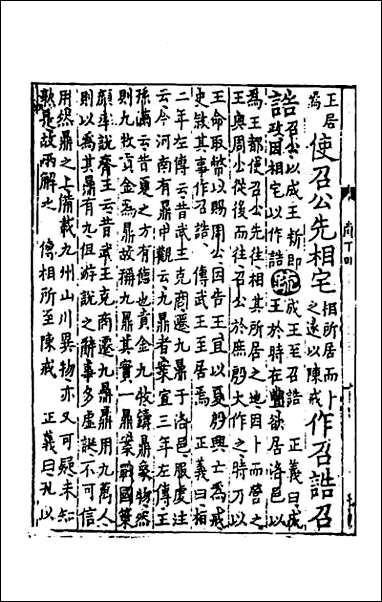 王居
為
使召公先相宅
相所居而卜
之遂以陳戒
作召誥召
誥
召公以成王新即
政因相宅以作誥
疏
成王至召誥 正義曰成
王於時在豐欲居洛邑以
為王都使召公先往相其所居之地因卜而營之
王與周公從後而往召公於庶殷大作之時乃以
王命取幣以賜周公因告王宜以夏殷興亡為戒
史敘其事作召誥 傳武王至居焉 正義曰桓
二年左傳云昔武王克商遷九鼎于洛邑服虔注
云今河南有鼎中觀云九鼎者案宣三年左傳王
孫滿云昔夏之方有德也貢金九牧鑄鼎象物然
則九牧貢金為鼎故稱九鼎其實一鼎案戰國策
顏率說齊王云昔武王克商遷九鼎鼎用九萬人
則以為其鼎有九但游說之辭事多虛誕不可信
用然鼎之上備載九州山川異物亦又可疑未知
孰是故兩解之 傳相所至陳戒 正義曰孔以